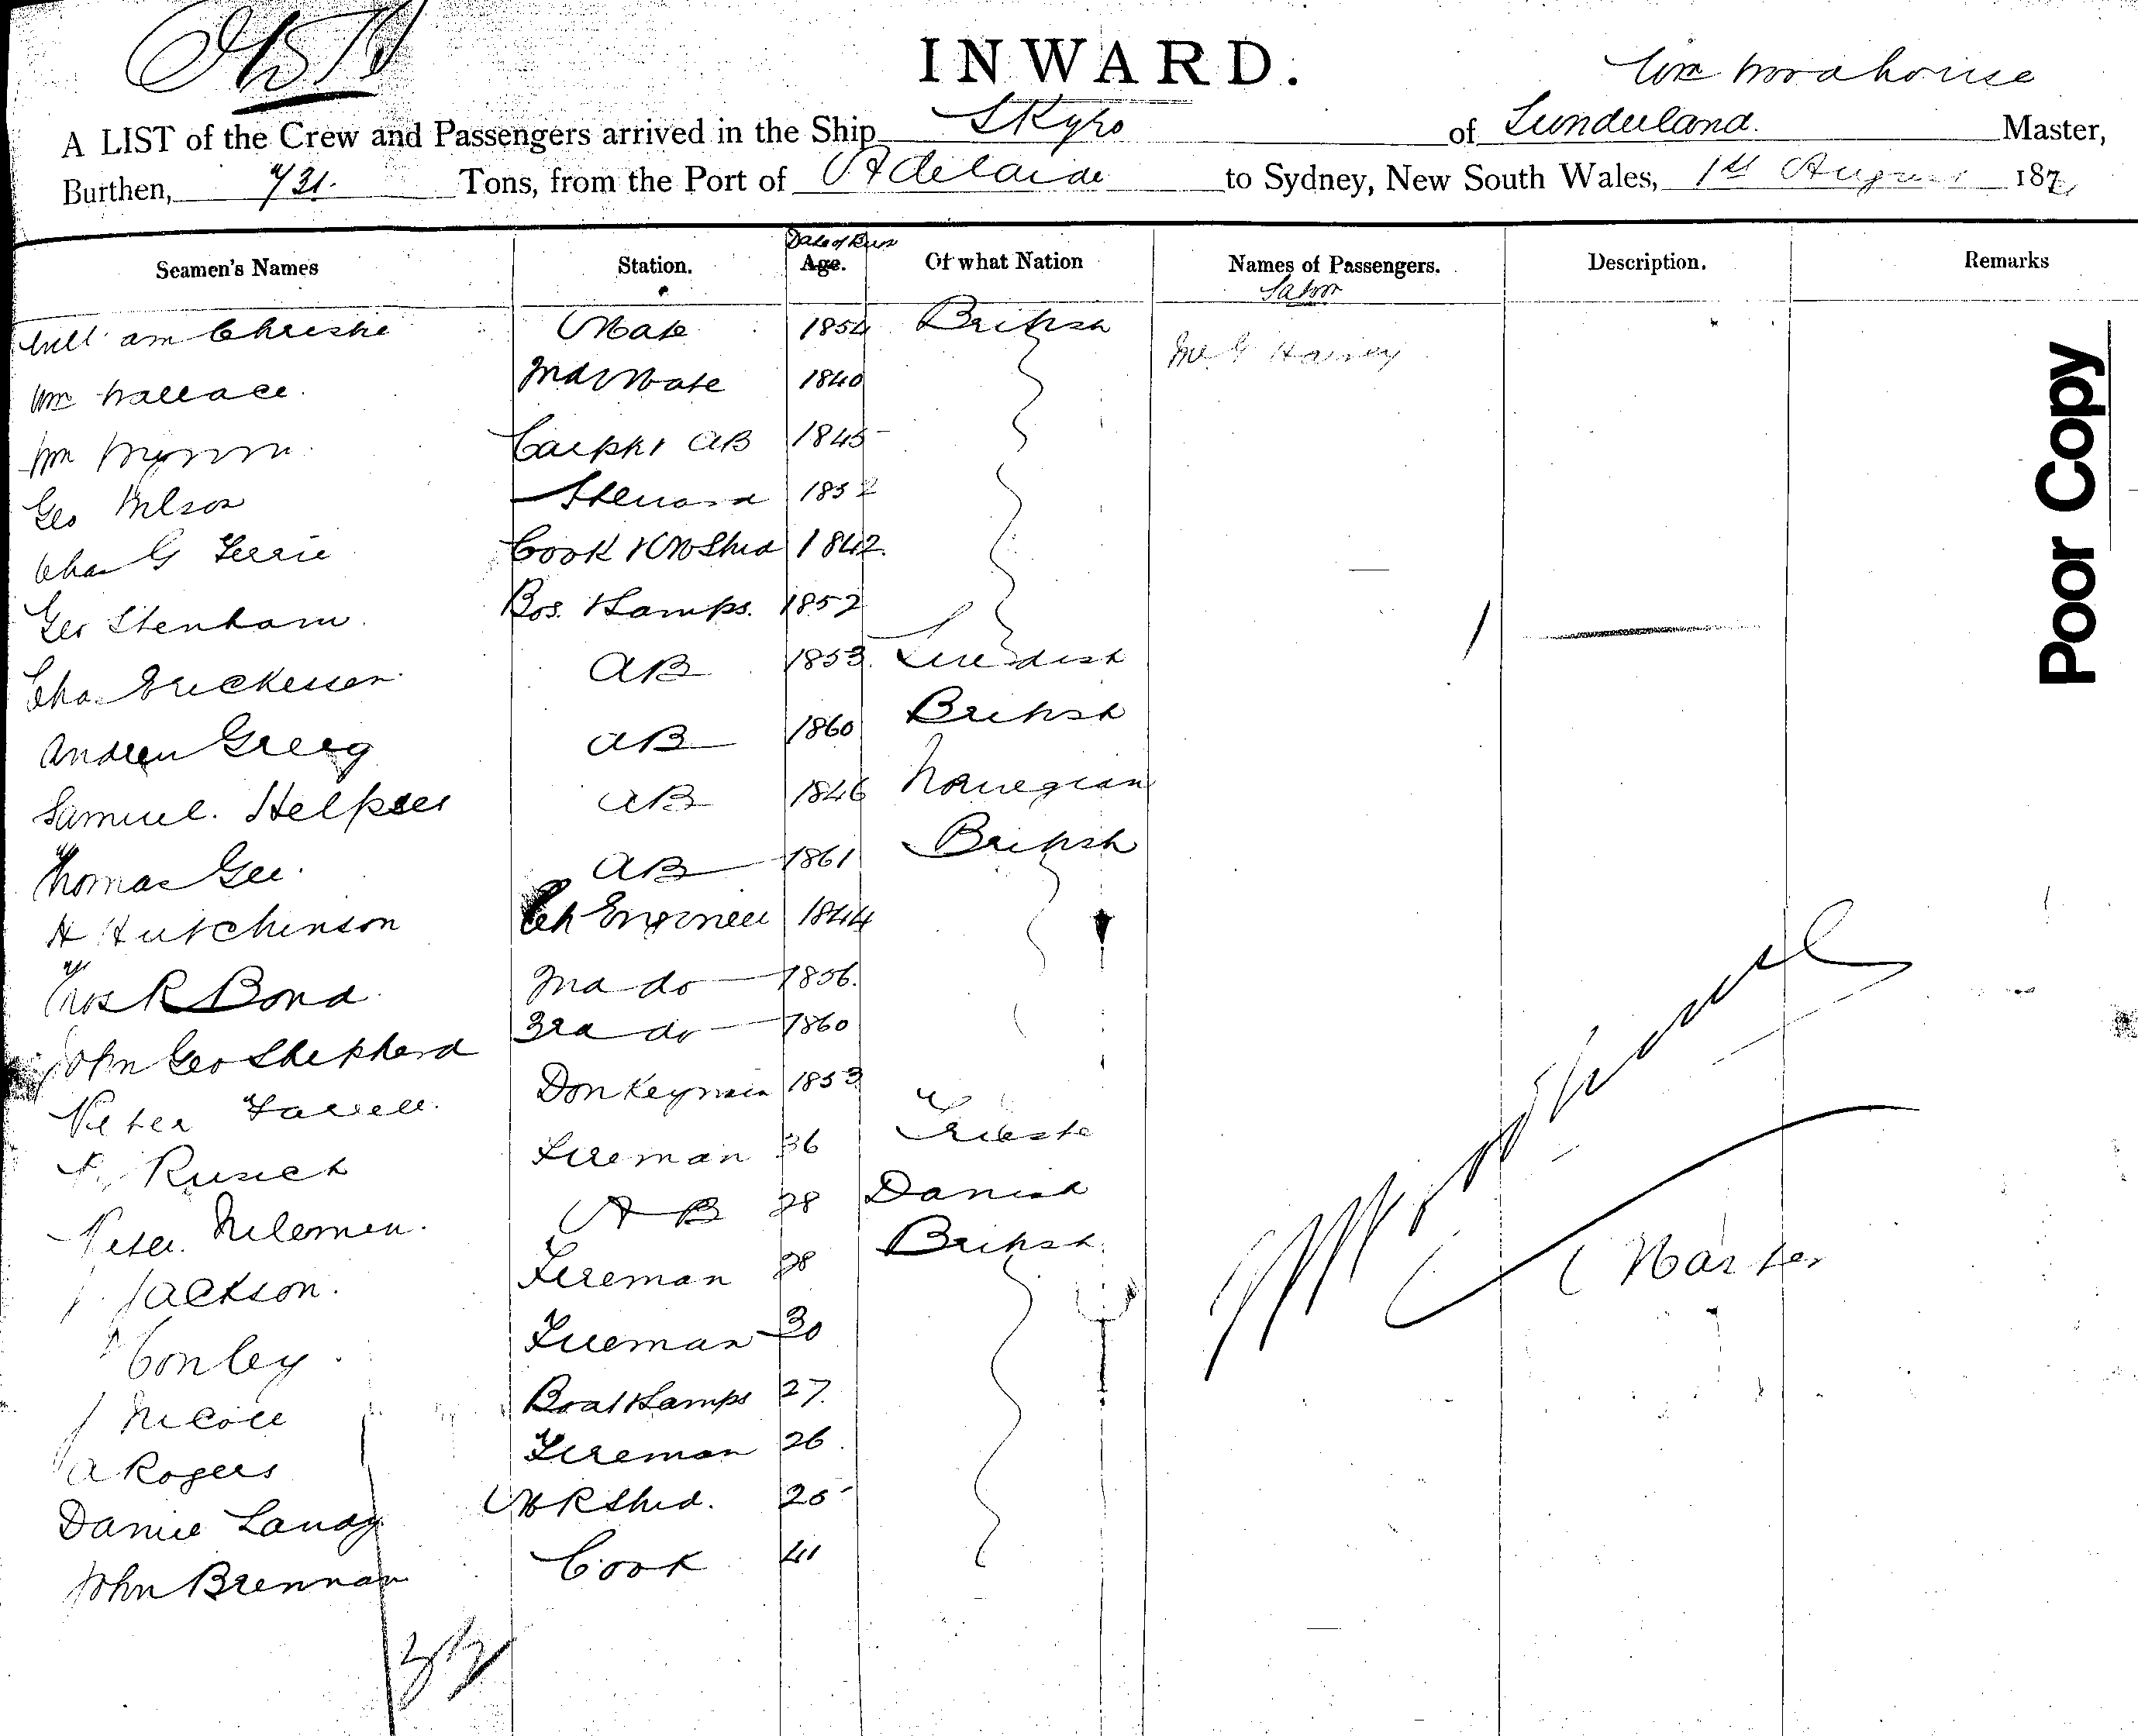 INWARD.
Wm Woodhouse
A LIST of the Crew and Passengers arrived in the Ship Skyro of Sunderland. Master,
Burthen, 731. Tons, from the Port of Adelaide to Sydney, New South Wales, 1st August 187
Date of Birth
Seamen's Names Station. Age. Of what Nation Names of Passengers. Description. Remarks
Saloon
William Christie Mate 1854 British
Mr G Harvey
Wm Wallace. 2nd Mate 1840
Wm Carptr AB 1845
Geo Wilson Steward 1852
Chas G Ferrie Cook & M Stwd 1842.
Geo Stenham. Bos. & Lamps. 1852
Chas Erickesen AB 1853. Swedish
Andrew Greig AB 1860 British
Samuel. AB 1846 Norwegian
Thomas Gee. AB 1861 British
H Hutchinson Ch Engineer 1844
Thos R Bond. 2nd do 1856.
John Geo Shepherd 3rd do 1860
Peter Farrell. Donkeyman 1853
Rusich Fireman 36 Trieste
Peter A B 28 Danish
J. Jackson. Fireman 28 British.
Conley. Fireman 30
J Nicoll Boat & Lamps 27.
A Rogers Fireman 26.
Daniel M R Stwd. 25
John Brennan Cook 41
Master
Poor Copy